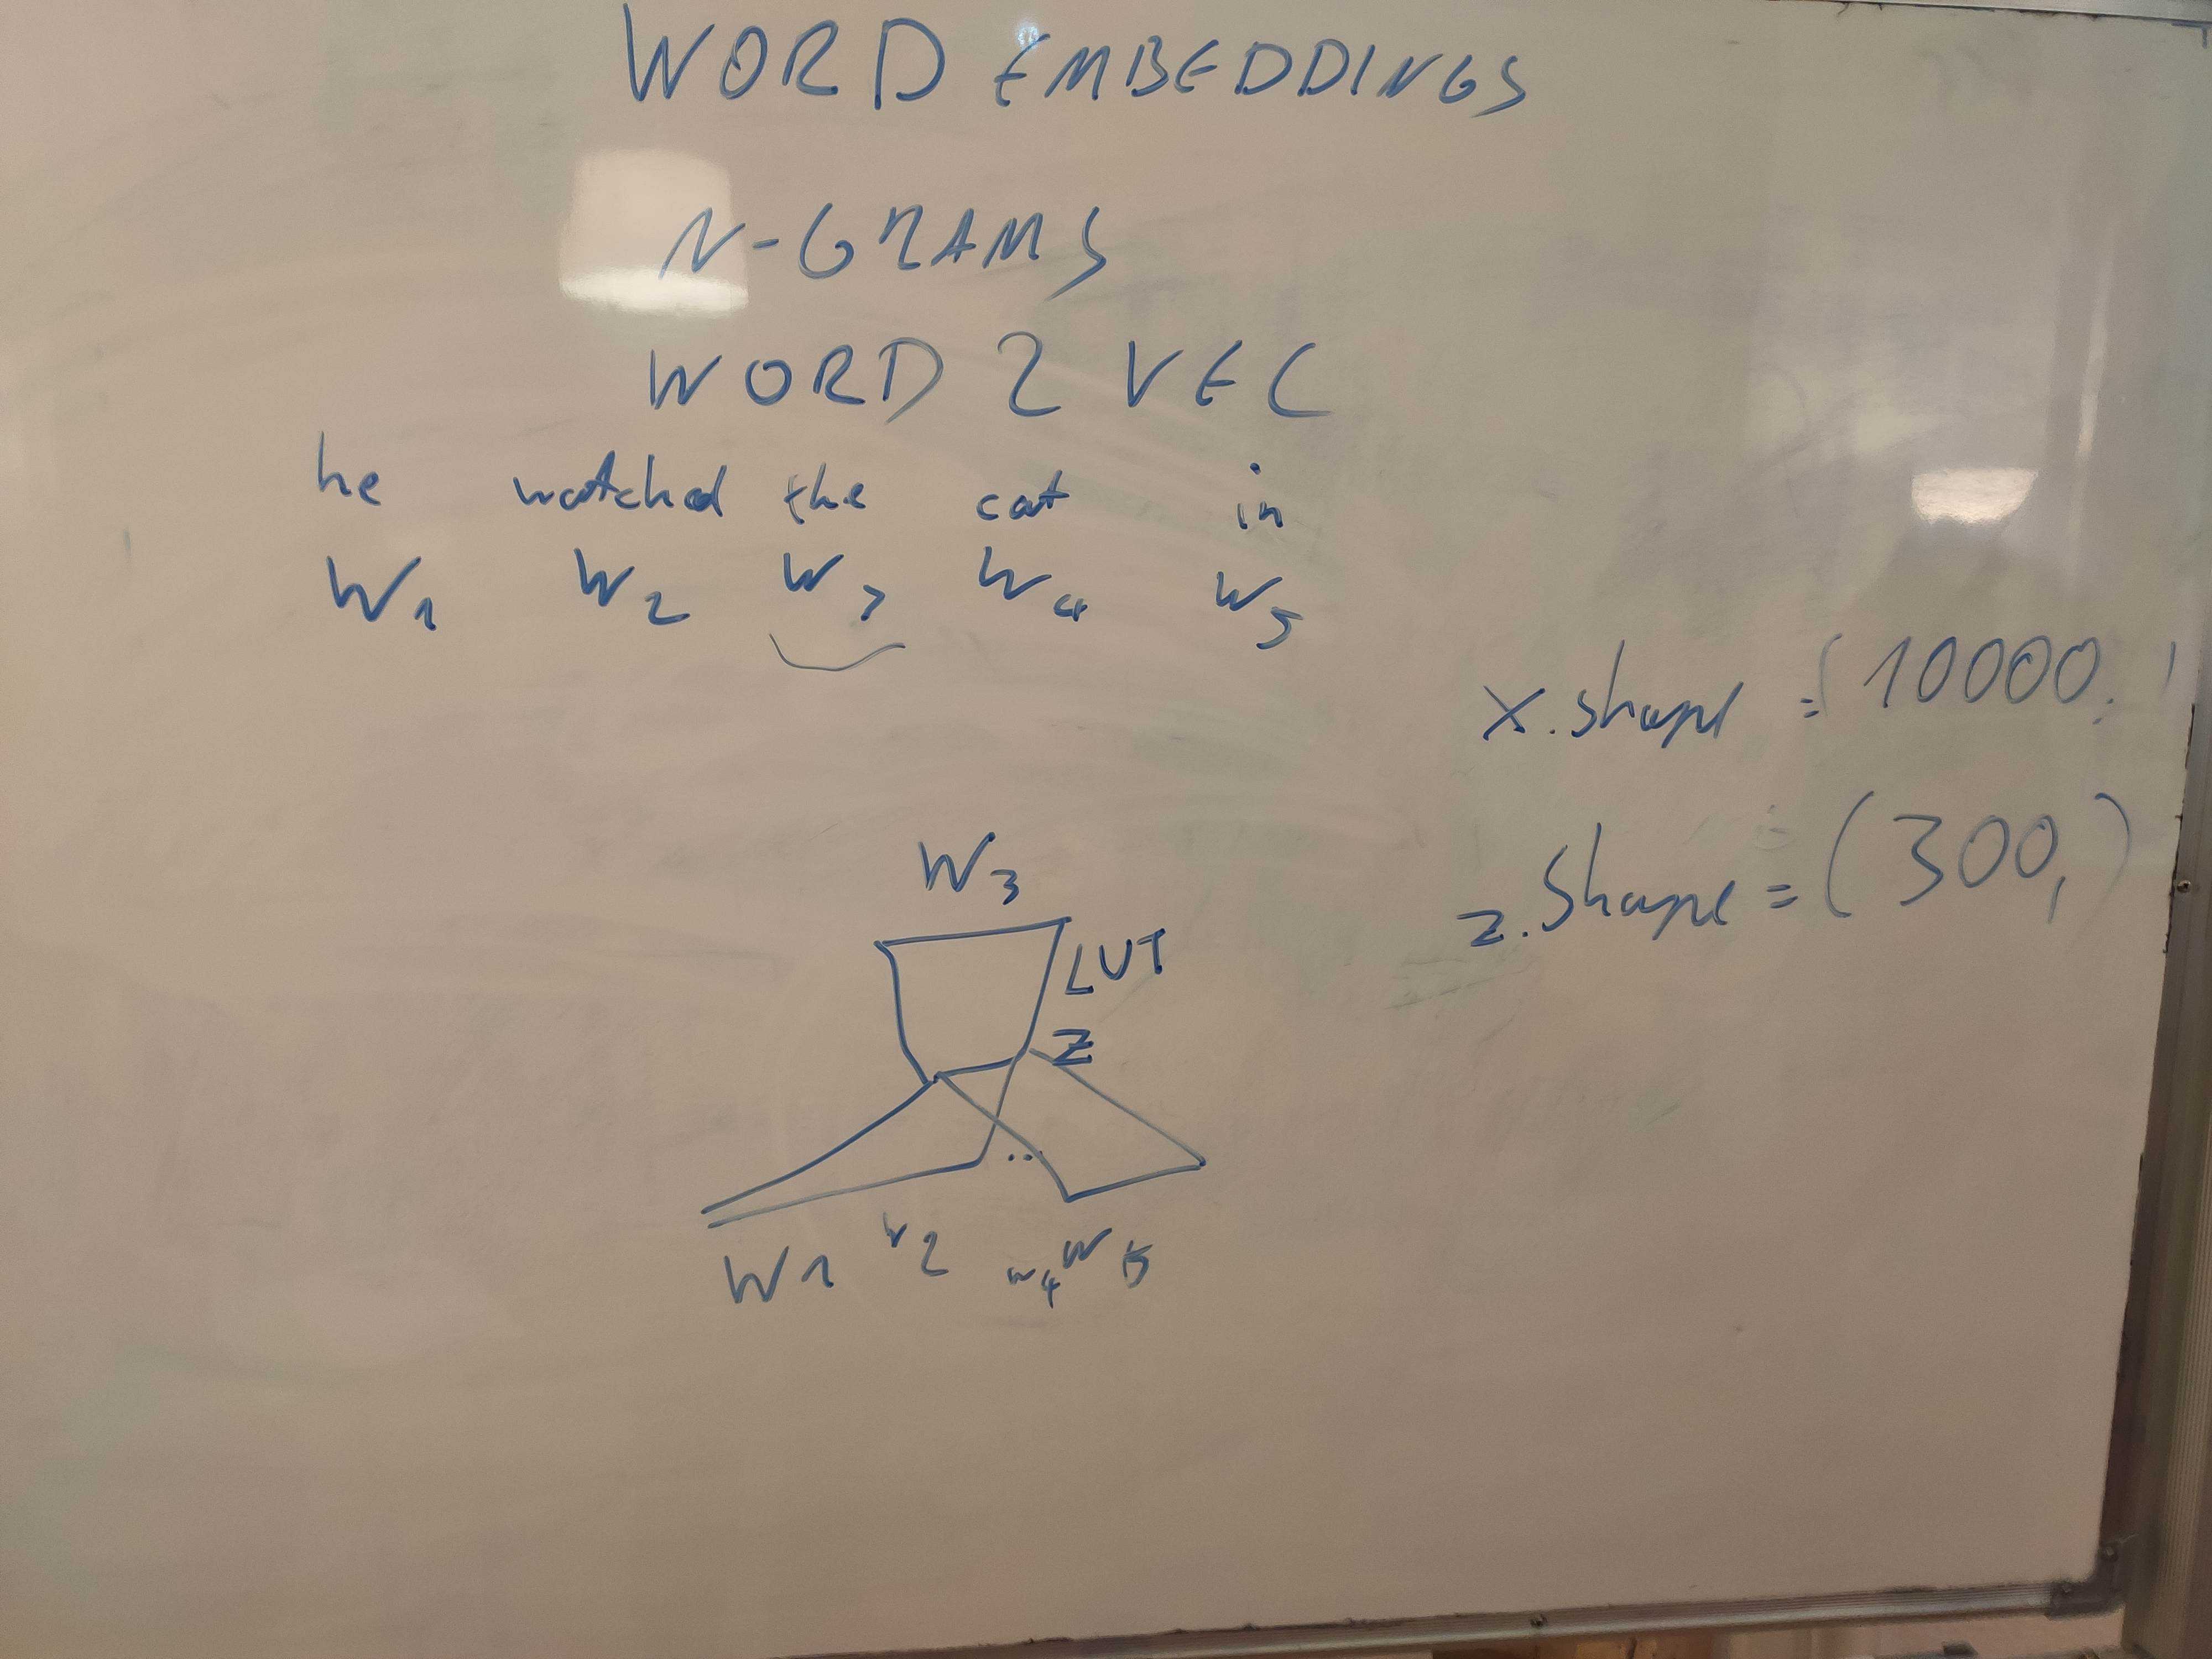 WORD EMBEDDINGS
N-GRAMS
WORD 2 VEC
he watched the cat in
W1 W2 W3 W4 W5
x.shape = (10000,)
z.shape = (300,)
W3
LUT
Z
..
W1 W2 W4 W5